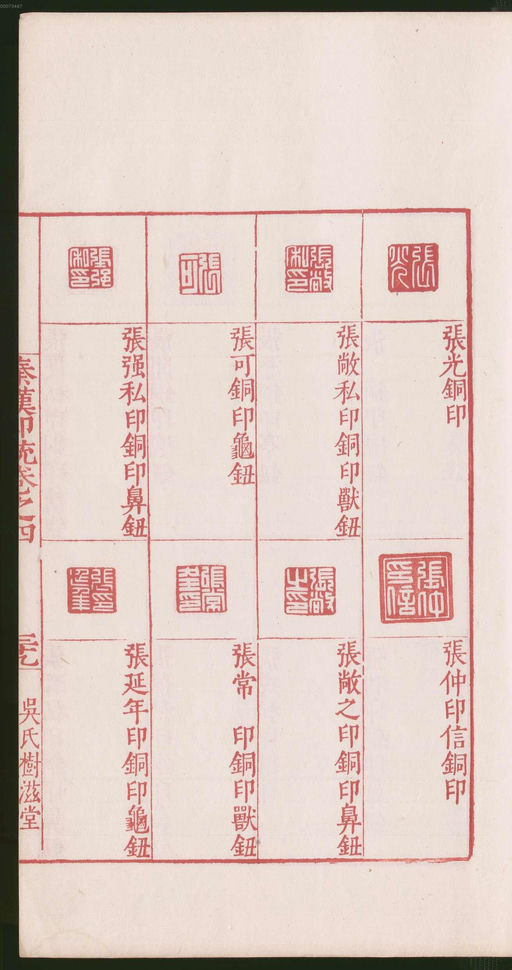 張光銅印
張敞私印銅印獸鈕
張可銅印龜鈕
張强私印銅印鼻鈕
張仲印信銅印
張敞之印銅印鼻鈕
張常 印銅印獸鈕
張延年印銅印龜鈕
秦漢印統卷之四
吳氏樹滋堂